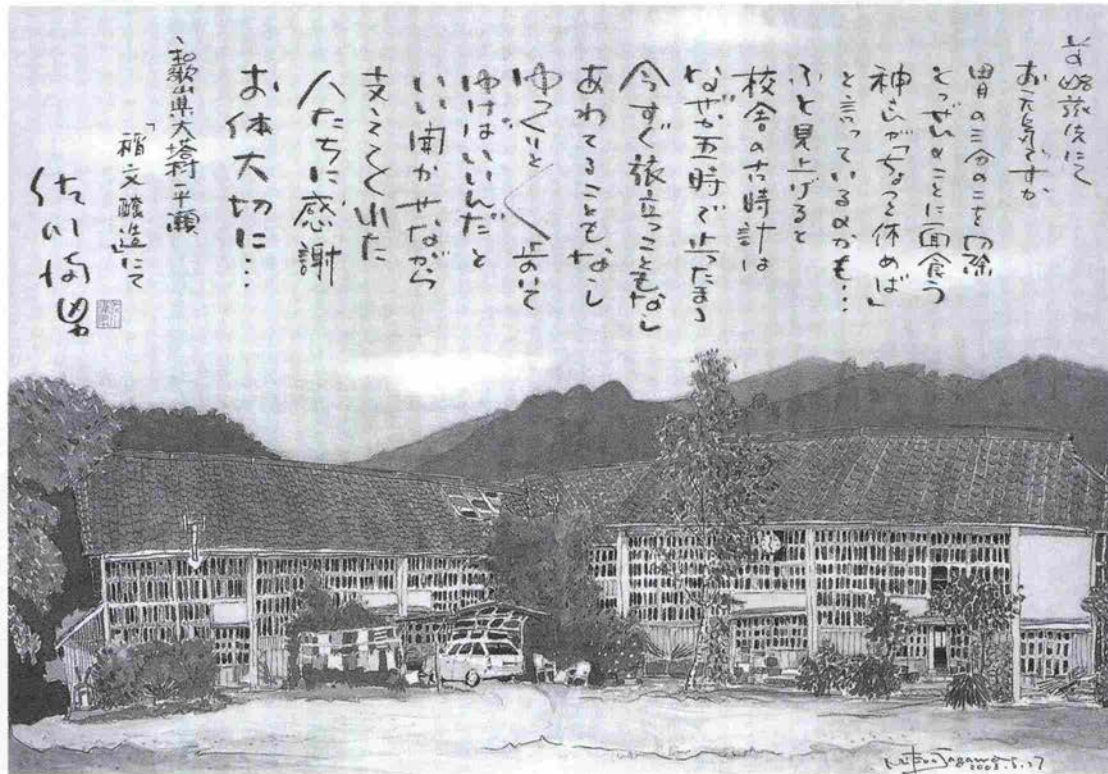 前略旅先にて
お元気ですか
胃の三分の二を切除
とつぜんのことに面食う
神さんが「ちょっと休めば」
と言っているのかも…
ふと見上げると
校舎の古時計は
なぜか五時で止ったまゝ
今すぐ旅立つこともなし
あわてることもなし
ゆっくりと〳〵歩いて
ゆけばいいんだと
いい聞かせながら
支えてくれた
人たちに感謝
お体大切に…
和歌山県大塔村平瀬
「稲文醸造」にて
佐川満男
Mitsuo Sagawa
2003.5.27